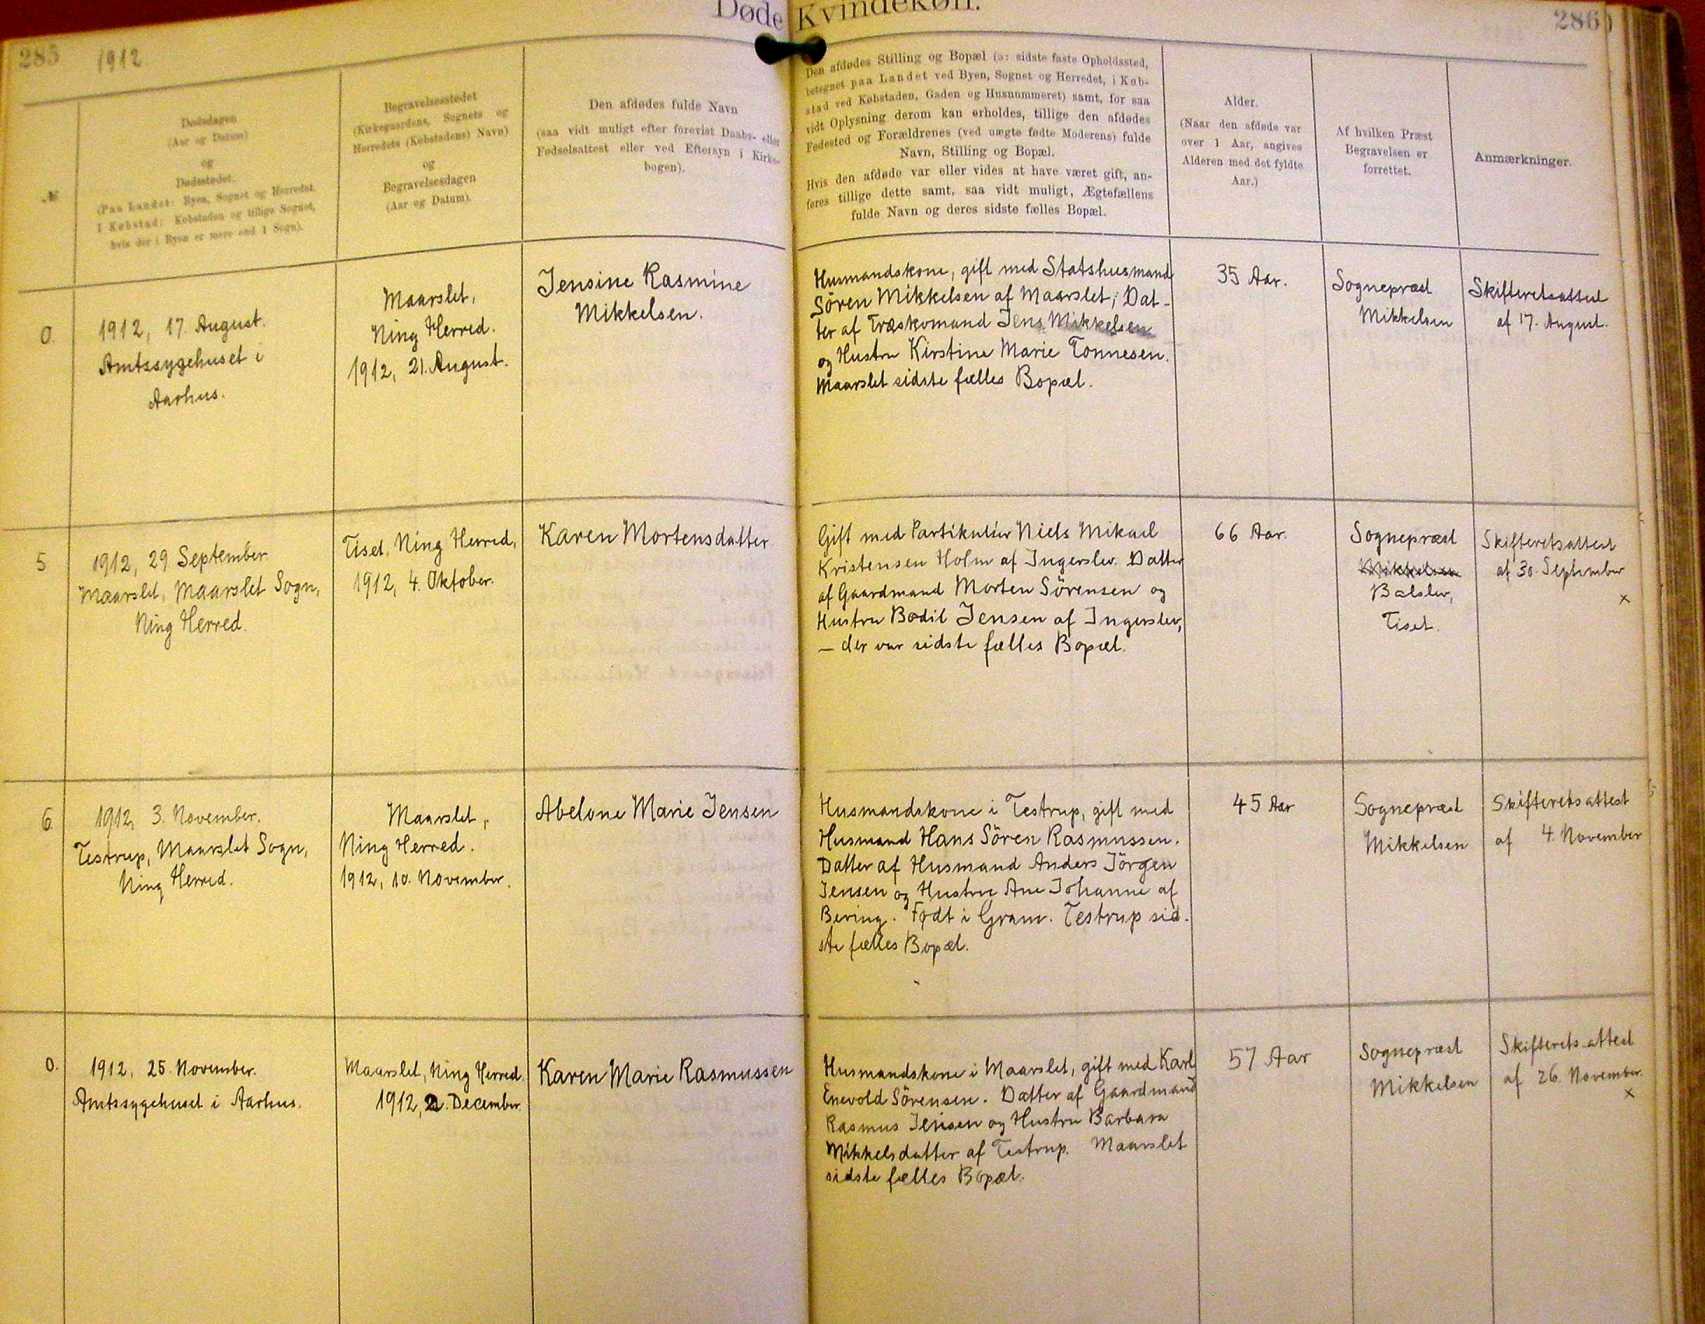 Døde Kvindekøn.
285
1912
286
№
Dødsdagen
(Aar og Datum)
og
Dødsstedet.
(Paa Landet: Byen, Sognet og Herredet.
I Købstad: Købstaden og tillige Sognet,
hvis der i Byen er mere end 1 Sogn).
Begravelsesstedet
(Kirkegaardens, Sognets og
Herredets (Købstadens) Navn)
og
Begravelsesdagen
(Aar og Datum).
Den afdødes fulde Navn
(saa vidt muligt efter forevist Daabs- eller
Fødselsattest eller ved Eftersyn i Kirke-
bogen).
Den afdødes Stilling og Bopæl (ɔ: sidste faste Opholdssted,
betegnet paa Landet ved Byen, Sognet og Herredet, i Køb-
stad ved Købstaden, Gaden og Husnummeret) samt, for saa
vidt Oplysning derom kan erholdes, tillige den afdødes
Fødested og Forældrenes (ved uægte fødte Moderens) fulde
Navn, Stilling og Bopæl.
Hvis den afdøde var eller vides at have været gift, an-
føres tillige dette samt, saa vidt muligt, Ægtefællens
fulde Navn og deres sidste fælles Bopæl.
Alder.
(Naar den afdøde var
over 1 Aar, angives
Alderen med det fyldte
Aar.)
Af hvilken Præst
Begravelsen er
forrettet.
Anmærkninger.
0.
1912, 17. August.
Amtssygehuset i
Aarhus.
Maarslet,
Ning Herred.
1912, 21. August.
Jensine Rasmine
Mikkelsen.
Husmandskone, gift med Statshusmand
Sören Mikkelsen af Maarslet; Dat-
ter af Træskomand Jens Mikkelsen
og Hustru Kirstine Marie Tonnesen.
Maarslet sidste fælles Bopæl.
35 Aar.
Sognepræst
Mikkelsen
Skifteretsattest
af 17. August.
5
1912, 29 September
Maarslet, Maarslet Sogn,
Ning Herred.
Tiset, Ning Herred,
1912, 4. Oktober.
Karen Mortensdatter
Gift med Partikulier Niels Mikael
Kristensen Holm af Ingerslev. Datter
af Gaardmand Morten Sörensen og
Hustru Bodil Jensen af Ingerslev,
— der var sidste fælles Bopæl.
66 Aar.
Sognepræst
Mikkelsen
Balslev,
Tiset.
Skifteretsattest
af 30. September
x
6
1912, 3. November.
Testrup, Maarslet Sogn,
Ning Herred.
Maarslet,
Ning Herred.
1912, 10. November.
Abelone Marie Jensen
Husmandskone i Testrup, gift med
Husmand Hans Sören Rasmussen.
Datter af Husmand Anders Jörgen
Jensen og Hustru Ane Johanne af
Bering. Födt i Gram. Testrup sid-
ste fælles Bopæl.
45 Aar
Sognepræst
Mikkelsen
Skifteretsattest
af 4. November
0.
1912, 25. November.
Amtssygehuset i Aarhus.
Maarslet, Ning Herred
1912, 2. December.
Karen Marie Rasmussen
Husmandskone i Maarslet, gift med Karl
Enevold Sörensen. Datter af Gaardmand
Rasmus Jensen og Hustru Barbara
Mikkelsdatter af Testrup. Maarslet
sidste fælles Bopæl.
57 Aar
Sognepræst
Mikkelsen
Skifteretsattest
af 26. November.
x